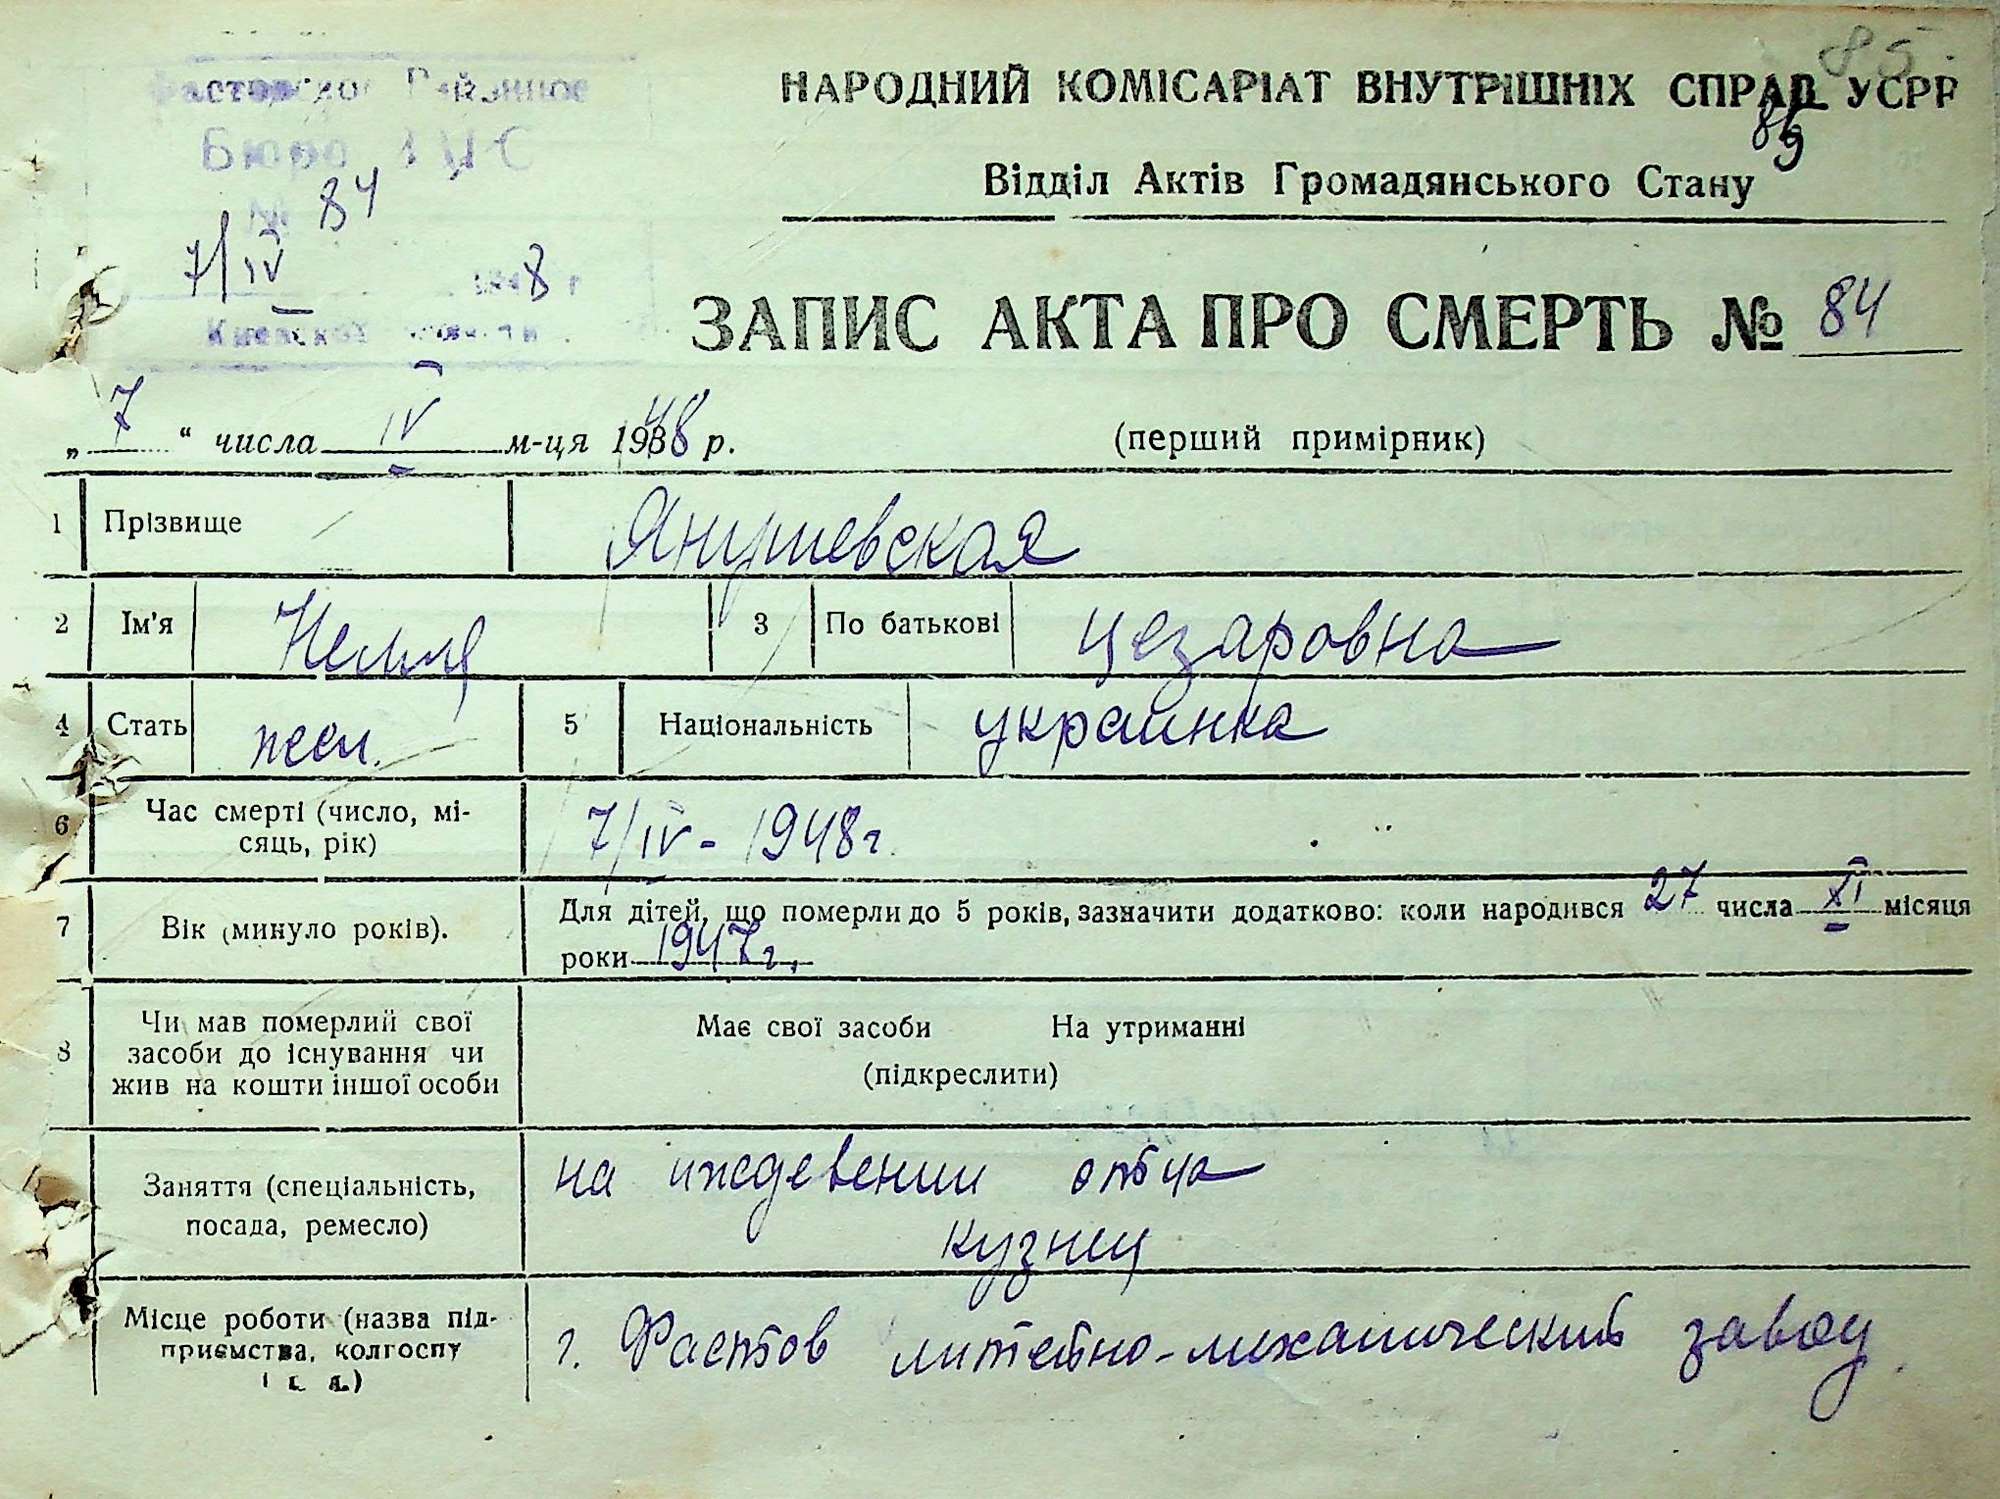 85
Фастовское Районное
Бюро ЗАГС
№ 84
7/IV 1948 г
Киевской области
НАРОДНИЙ КОМІСАРІАТ ВНУТРІШНІХ СПРАВ УСРР
Відділ Актів Громадянського Стану
ЗАПИС АКТА ПРО СМЕРТЬ № 84
„ 7 “ числа IV м-ця 1948 р.
(перший примірник)
1 Прізвище Янушевская
2 Ім'я Нелля 3 По батькові Цезаровна
4 Стать жен. 5 Національність украинка
6 Час смерті (число, мі-
сяць, рік) 7/IV - 1948 г.
7 Вік (минуло років). Для дітей, що померли до 5 років, зазначити додатково: коли народився 27 числа XI місяця
роки 1947 г.
8 Чи мав померлий свої
засоби до існування чи
жив на кошти іншої особи
Має свої засоби На утриманні
(підкреслити)
Заняття (спеціальність,
посада, ремесло)
на иждевении отца
кузнец
Місце роботи (назва під-
приємства, колгоспу
і т. д.)
г. Фастов литейно-механический завод.